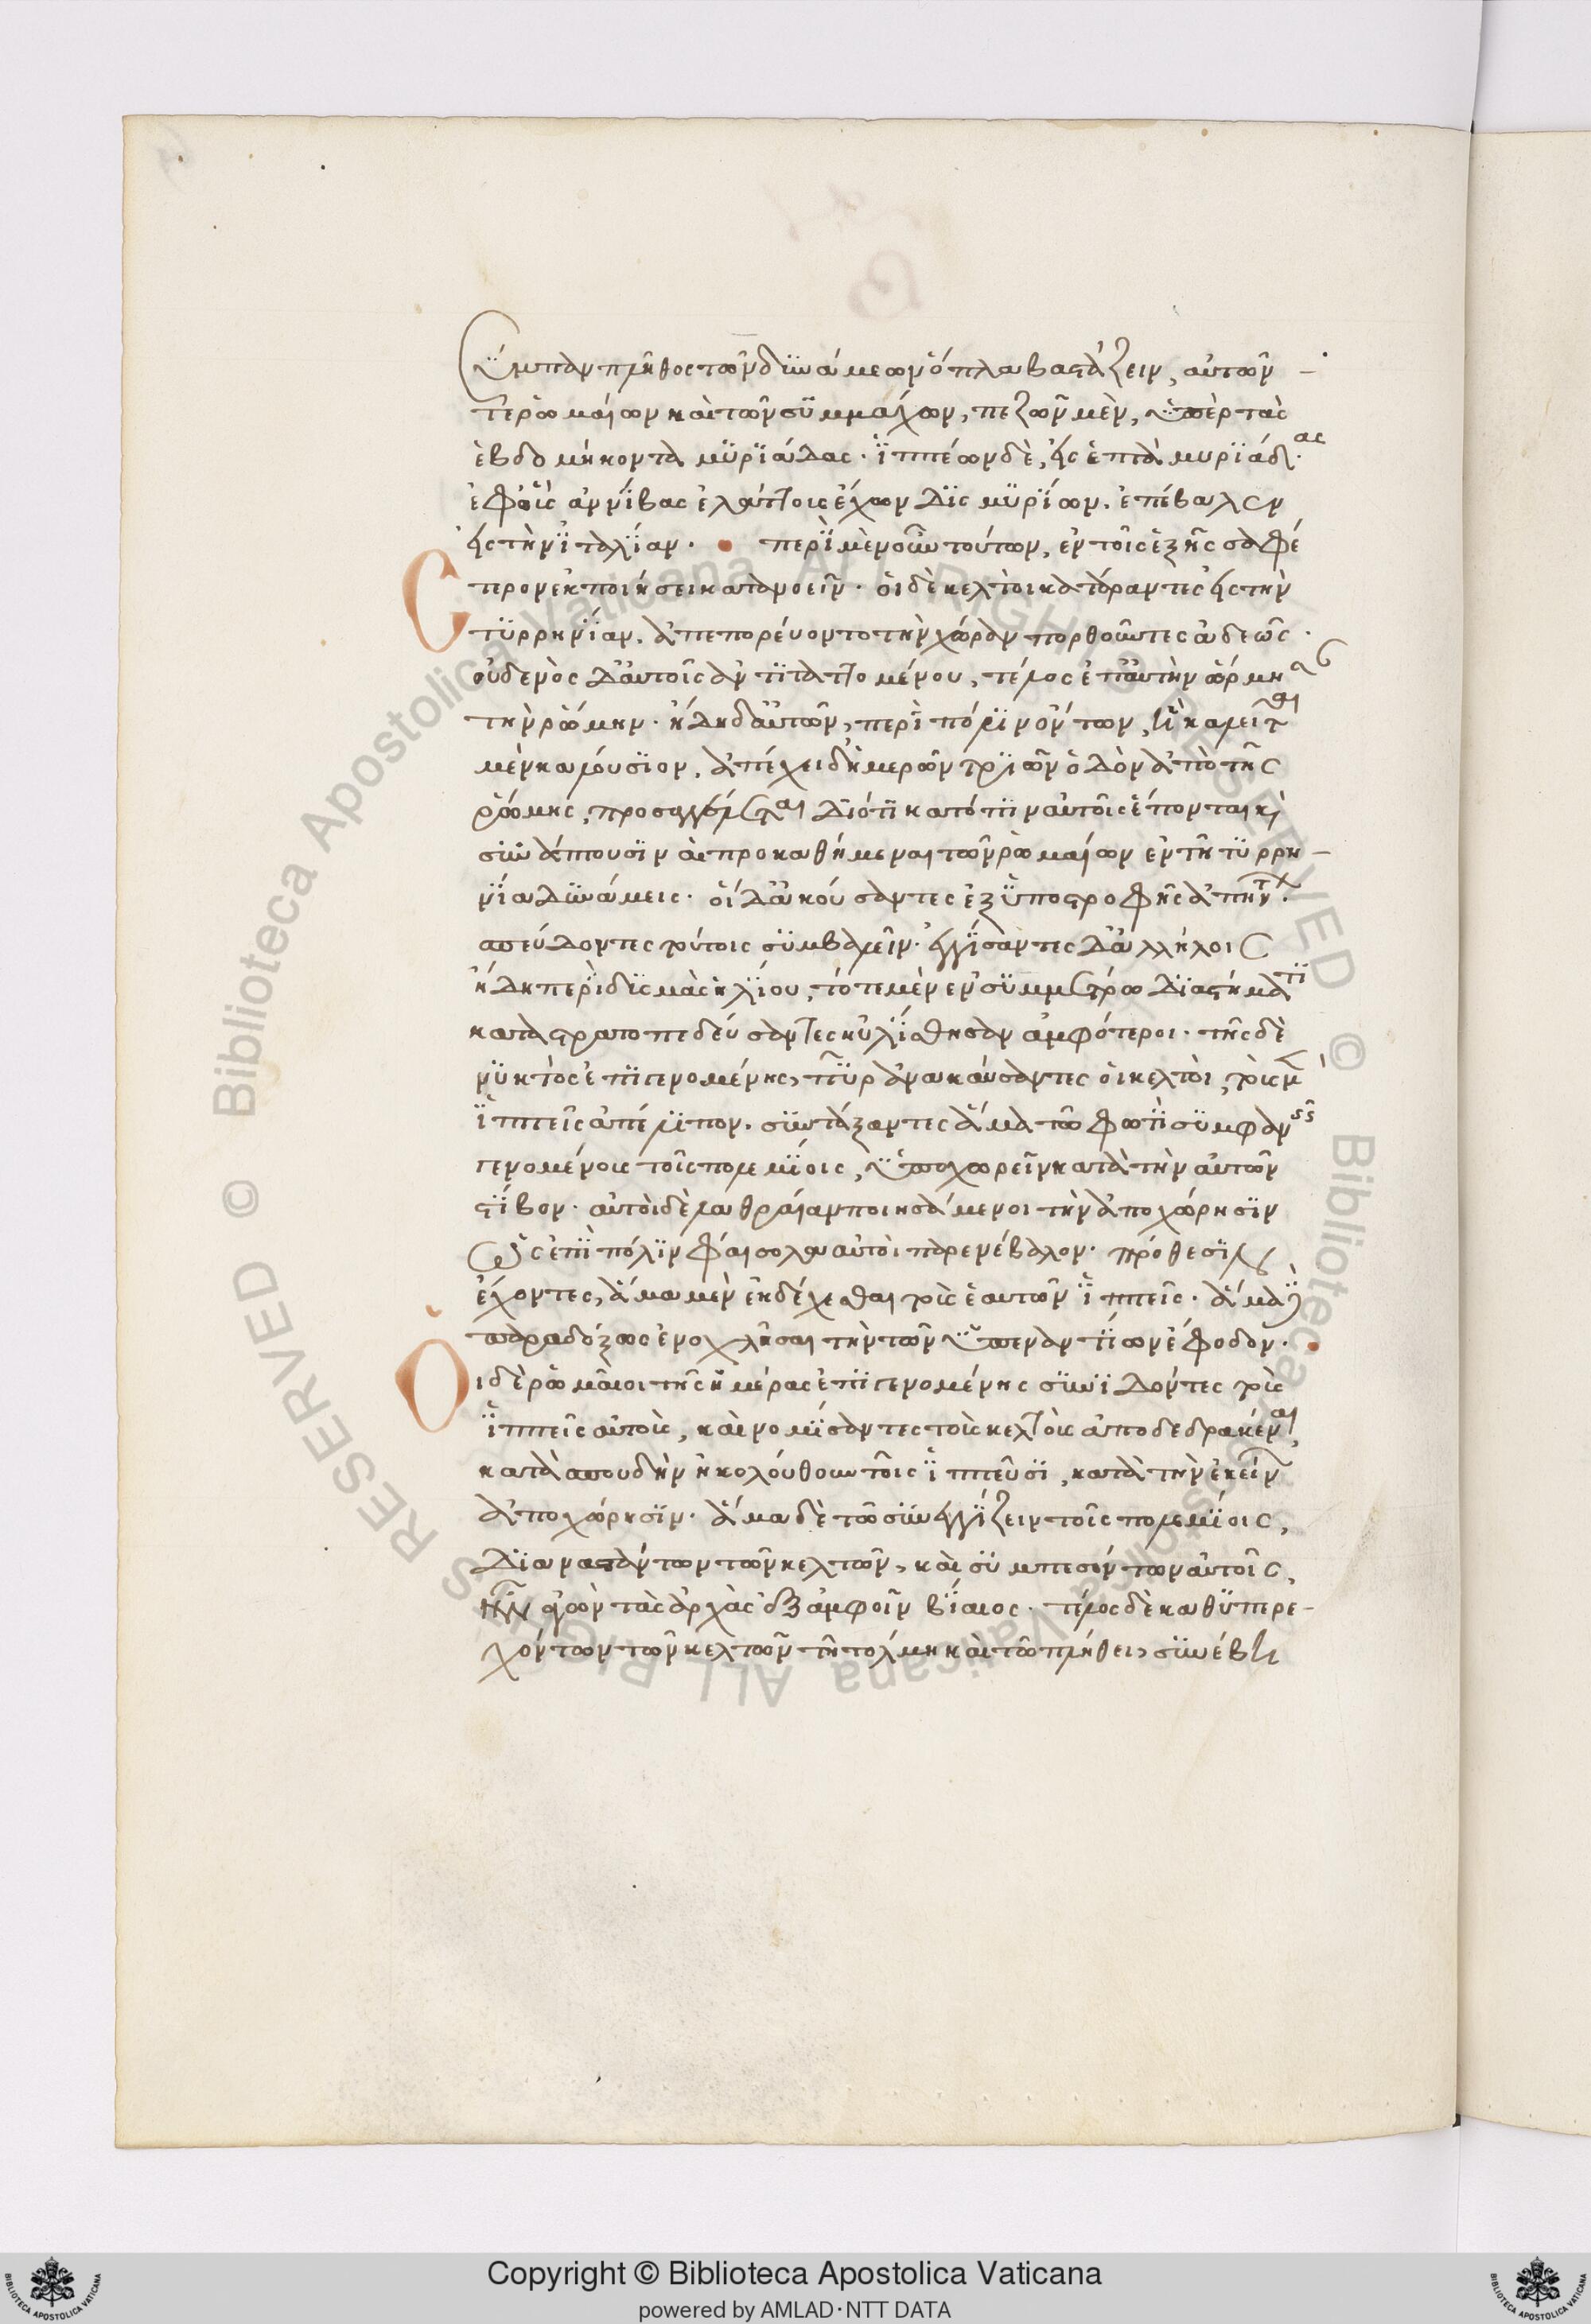 σύμπαν πλῆθος τῶν δυνάμεων ὅπλα βαστάζειν, αὐτῶν
τε ῥωμαίων καὶ τῶν συμμάχων, πεζῶν μὲν, ὑπὲρ τὰς
ἑβδομήκοντα μυριάδας· ἱππέων δὲ, εἰς ἑπτὰ μυριάδας·
ἐφ' οὓς ἀννίβας ἐλάττους ἔχων δισμυρίων, ἐπέβαλεν
εἰς τὴν ἰταλίαν· περὶ μὲν οὖν τούτων, ἐν τοῖς ἑξῆς σαφέ
στερον ἐκποιήσει κατανοεῖν· οἱ δὲ κελτοὶ κατάραντες εἰς τὴν
τυρρηνίαν, ἐπεπορεύοντο τὴν χώραν πορθοῦντες ἀδεῶς·
οὐδενὸς δ' αὐτοῖς ἀντιταττομένου, τέλος ἐπ' αὐτὴν ὥρμησαν
τὴν ῥώμην· ἤδη δ' αὐτῶν, περὶ πόλιν ὄντων, ἣ καλεῖται
μὲν κλούσιον, ἀπέχει δ' ἡμερῶν τριῶν ὁδὸν ἀπὸ τῆς
ῥώμης, προσαγγέλλεται διότι κατόπιν αὐτοῖς ἕπονται καὶ
συνάπτουσιν αἱ προκαθήμεναι τῶν ῥωμαίων ἐν τῇ τυρρη
νίᾳ δυνάμεις· οἱ δ' ἀκούσαντες ἐξ ὑποστροφῆς ἀπήντων
σπεύδοντες τούτοις συμβαλεῖν· ἐγγίσαντες δ' ἀλλήλοις
ἤδη περὶ δυσμὰς ἡλίου, τότε μὲν ἐν συμμέτρῳ διαστήματι
καταστρατοπεδεύσαντες ηὐλίσθησαν ἀμφότεροι· τῆς δὲ
νυκτὸς ἐπιγενομένης, πῦρ ἀνακαύσαντες οἱ κελτοὶ, τοὺς μὲν
ἱππεῖς ἀπέλιπον, συντάξαντες ἅμα τῷ φωτὶ συμφανεῖς
γενομένους τοῖς πολεμίοις, ὑποχωρεῖν κατὰ τὴν αὐτῶν
στίβον· αὐτοὶ δὲ λαθραίαν ποιησάμενοι τὴν ἀποχώρησιν
ὡς ἐπὶ πόλιν φαίσολαν αὐτοὶ παρενέβαλον· πρόθεσιν
ἔχοντες, ἅμα μὲν ἐκδέχεσθαι τοὺς ἑαυτῶν ἱππεῖς· ἅμα δὲ
παραδόξως ἐνοχλῆσαι τὴν τῶν ὑπεναντίων ἔφοδον·
Οἱ δὲ ῥωμαῖοι τῆς ἡμέρας ἐπιγενομένης συνιδόντες τοὺς
ἱππεῖς αὐτοὺς, καὶ νομίσαντες τοὺς κελτοὺς ἀποδεδρακέναι,
κατὰ σπουδὴν ἠκολούθουν τοῖς ἱππεῦσι, κατὰ τὴν ἐκείνων
ἀποχώρησιν· ἅμα δὲ τῷ συνεγγίζειν τοῖς πολεμίοις,
διαναστάντων τῶν κελτῶν, καὶ συμπεσόντων αὐτοῖς,
ἦν ἀγὼν τὰς ἀρχὰς ἐξ ἀμφοῖν βίαιος· τέλος δὲ καθυπερε
χόντων τῶν κελτῶν τῇ τόλμῃ καὶ τῷ πλήθει, συνέβη
Copyright © Biblioteca Apostolica Vaticana
powered by AMLAD·NTT DATA